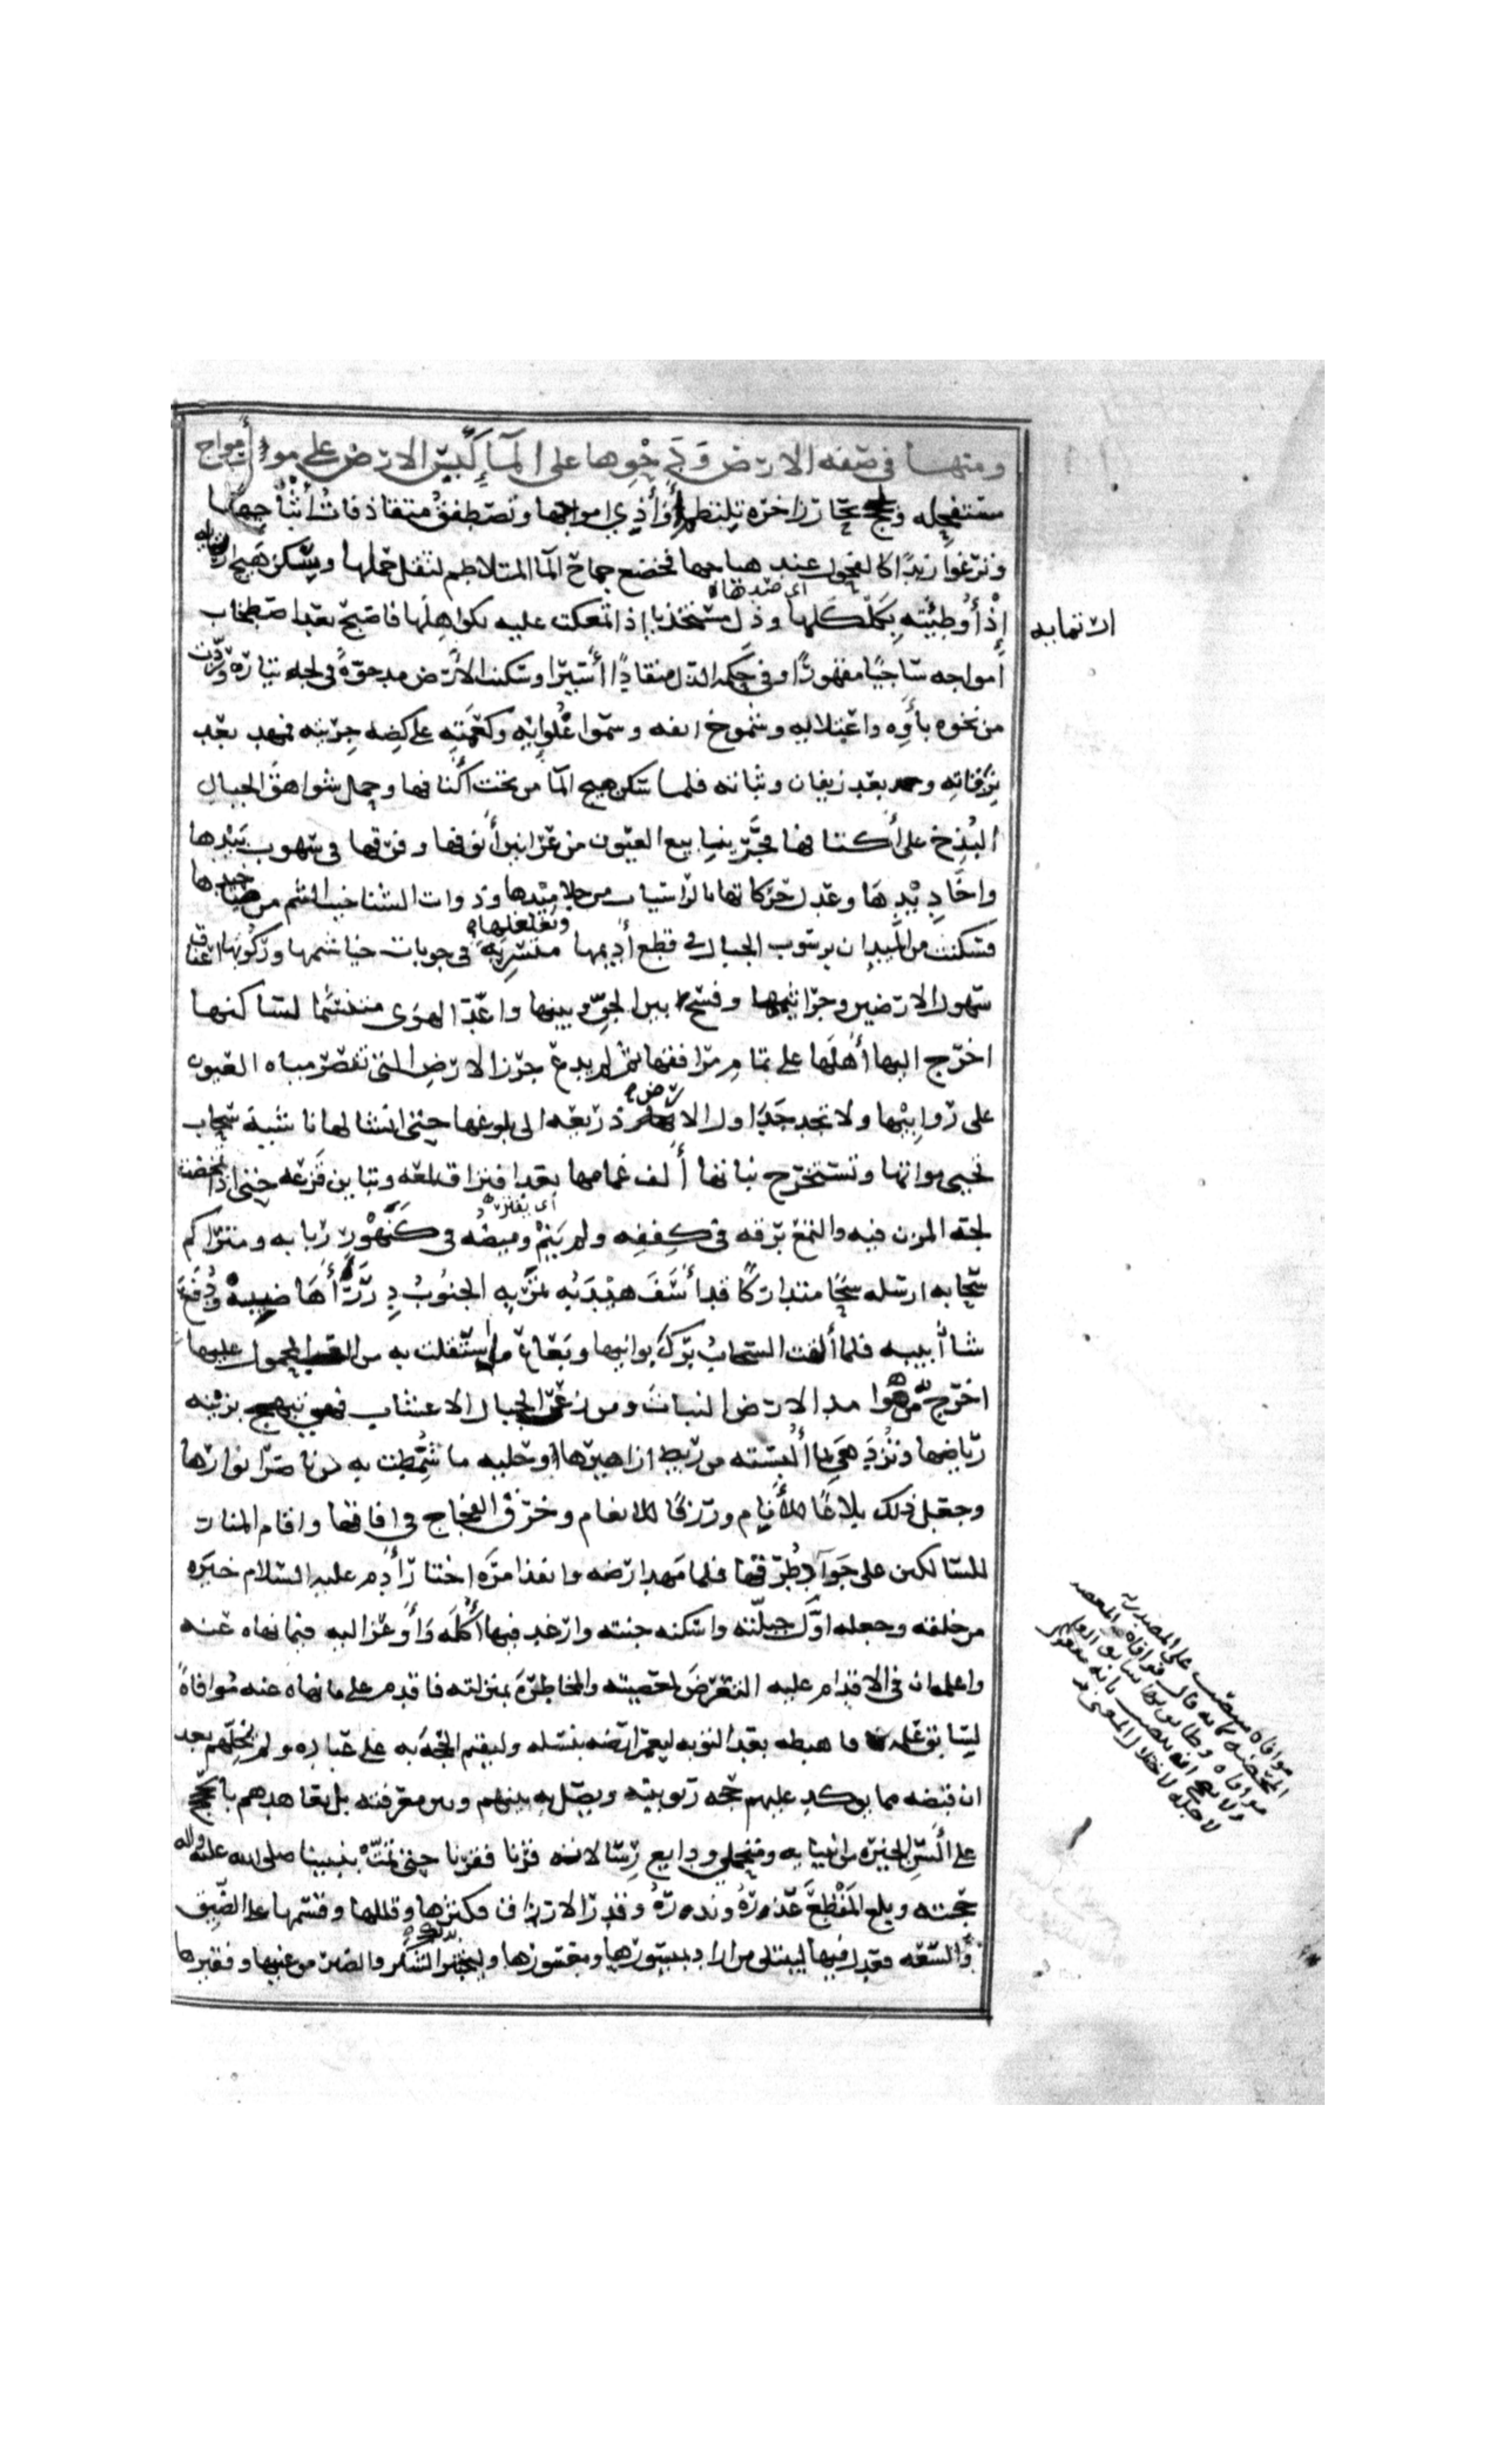 ومنها في صفة الارض ودحوها على المآ كبس الارض على مور أمواج
مستفحله ولجج بحار زاخره تلتطم أواذي امواجها وتصطفق متقاذفات أثباجها
وترغوا زبدًا كالفحول عند هياجها فخضع جماح المآ المتلاطم لثقل حملها وسكن هيج
ارتمايه
إذ أوطئته بكلكلها وذل مستخذيا إذ تمعكت عليه بكواهلها فاصبح بعد اصطخاب
اي صدرها
امواجه ساجيًا مقهورًا وفي حكمه الذل منقادًا أسيرا وسكنت الارض مدحوة في لجه تياره وردت
من نخوه بأوه واعتلايه وشموخ انفه وسموا غلوايه وكعمته على كظه جريته فهمد بعد
نزقاته وبعد زيفان وثباته فلما سكن هيج المآ من تحت أكنافها وحمل شواهق الجبال
البذخ على أكتافها فجر ينابيع العيون من عرانين أنوفها وفرقها في سهوب بيدها
واخاديدها وعدل حركاتها بالراسيات من جلاميدها وذوات الشناخيب الشم من صياخيدها
فسكنت من الميدان برسوب الجبال في قطع أديمها وتغلغلها متسربة في جوبات خياشيمها وركوبها اعناق
سهول الارضين وجراثيمها وفسح بين الجو وبينها واعد الهوى متنسما لساكنها
اخرج اليها أهلها على تمام مرافقها ثم لم يدع جرز الارض التي تقصر مياه العيون
على روابيها ولا تجد جداول الانهار ذريعه الى بلوغها حتى انشا لها ناشية سحاب
ارض
تحيي مواتها وتستخرج نباتها ألف غمامها بعد افتراق لمعه وتباين قزعه حتى اذا تمخضت
لجة المزن فيه والتمع برقه في كففه ولم ينم وميضه في كنهور ربابه ومتراكم
سحابه ارسله سحًا متداركًا قد أسف هيدبه تمريه الجنوب درر أهاضيبه ودفع
شآبيبه فلما ألقت السحاب برك بوانيها وبعاع ما استقلت به من العبء المحمول عليها
اخرج به من هوامد الارض النبات ومن زعر الجبال الاعشاب فهي تبهج بزينه
رياضها وتزدهي بما ألبسته من ريط ازاهيرها وحليه ما سمطت به من ناضر انوارها
وجعل ذلك بلاغًا للأنام ورزقًا للانعام وخرق الفجاج في افاقها واقام المنار
للسالكين على جوآد طرقها فلما مهد ارضه وانفذ امره اختار أدم عليه السلام خيره
من خلقه وجعله اول جبلته واسكنه جنته وارغد فيها أكله وأوعز اليه فيما نهاه عنه
واعلمه ان في الاقدام عليه التعرض لمعصيته والمخاطرة بمنزلته فاقدم على ما نهاه عنه موافاة
لسابق علمه فاهبطه بعد التوبه ليعمر ارضه بنسله وليقيم الحجه به على عباده ولم يخلهم بعد
ان قبضه مما يوكد عليهم حجه ربوبيته ويصل بينهم وبين معرفته بل تعاهدهم بالحجج
على ألسن الخيره من انبيايه ومتحملي ودايع رسالاته قرنا فقرنا حتى تمت بنبينا صلى الله عليه واله
حجته وبلغ المقطع عذره ونذره وقدر الارزاق فكثرها وقللها وقسمها على الضيق
والسعه فعدل فيها ليبتلي من اراد بميسورها ومعسورها وليختبر بذلك الشكر والصبر من غنيها وفقيرها
موافاه منصب على المصدريه